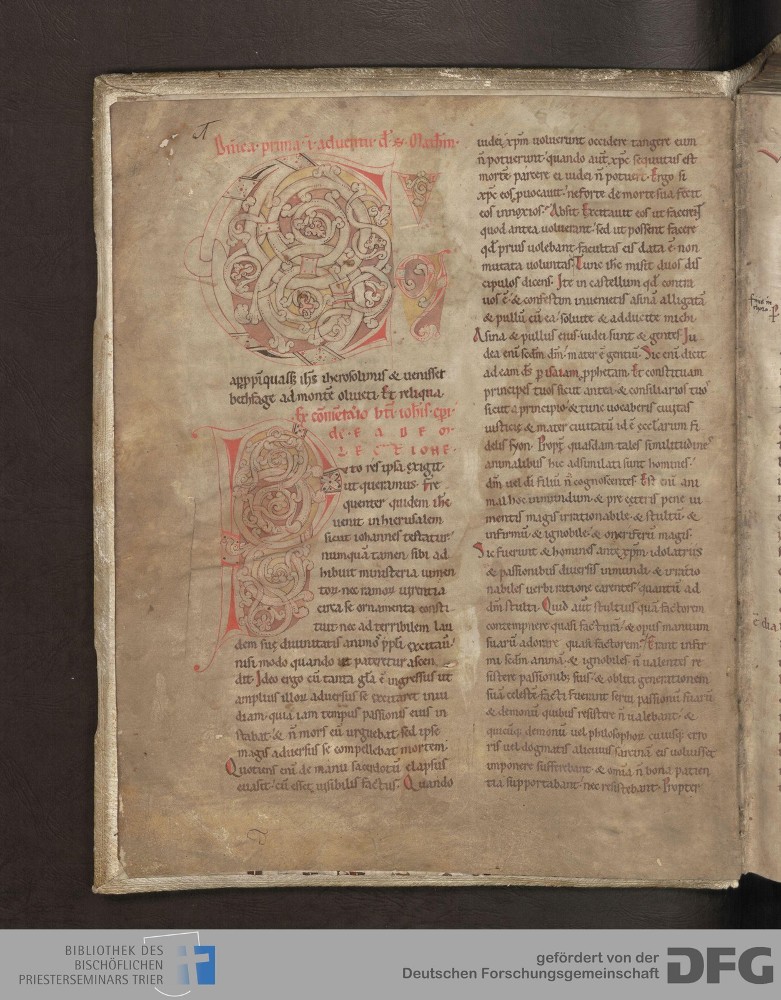 Dn̄ica · prima · ī · aduentu · d̄ · s̄ · Mathm̄ ·
CUM
appp̄īquass; ih̄s iherosolimis & uenisset
bethfage ad montē oliueti · Et reliqua ·
Ex cōm̄etario bt̄i · ioh̄is · ep̄i ·
de · EADEM ·
LECTIONE ·
Puto res ipsa exigit ·
ut queramus · Fre
quenter quidem ih̄c
uenit in hierusalem
sicut iohannes testatur ·
numquā tamen sibi ad
hibuit ministeria iumen
toꝝ · nec ramoꝝ uirentia
circa se ornamenta consti
tuit · nec ad terribilem lau
dem suę diuinitatis animoˢ pp̄li excitau͛ ·
nisi modo quando ut pateretur ascen
dit · Ideo ergo cū tanta gl̄a ē ingressus ut
amplius illoꝝ aduersus se excitaret inui
diam · quia iam tempus passionis eius in
stabat · & n̄ mors eū urguebat · sed ipse
magis aduersus se compellebat mortem ·
Quotiens enī de manu sacerdotū elapsus
euasit · cū esset uisibilis factus · Quando
iudei xp̄m uoluerunt occidere tangere eum
n̄ potuerunt · quando aut̄ xp̄c sequutus est
morte parcere ei iudei n̄ potuert̄ · Ergo si
xp̄c eos puocauit · ne forte de morte sua fecit
eos innoxios · Absit · Excitauit eos ut facerent
quod antea uoluerant · sed ut possent facere
qd̄ prius uolebant · facultas eis data ē · non
mutata uoluntas · Tunc ih̄c misit duos dis
cipulos dicens · Ite in castellum qd̄ contra
uos ē · & confestim inuenietis asinā alligatā
& pullū cū ea · soluite & adducite michi ·
Asina & pullus eius · iudei sunt & gentes · Iu
dea enī sc̄dm dm̄ · mater ē gentiū · Sic enī dicit
ad eam ds̄ p isaiam pphetam · Et constituam
principes tuos sicut antea · & consiliarios tuoˢ
sicut a principio · & tunc uocaberis ciuitas
iusticię & mater ciuitatū id ē ęcclarum fi
delis syon · Propt̄ quasdam tales similitudineˢ
animalibus hic adsimilati sunt homines ·
dm̄ uel di filiū n̄ cognoscentes · Est enī ani
mal hoc inmundum · & pre ceteris pene iu
mentis magis irrationabile · & stultū · &
infirmū & ignobile · & oneriferū magis ·
Sic fuerunt & homines ante xp̄m · idolatriis
& passionibus diuersis inmundi · & irratio
nabiles uerbi ratione carentes · quantū ad
dm̄ stulti · Quid aut̄ stultius quā factorem
contempnere quasi facturā · & opus manuum
suarū adorare quasi factorem · Erant infir
mi sc̄dm animā · & ignobiles n̄ ualentes re
sistere passionib; suis · & obliti generationem
suā celestē facti fuerunt serui passionū suarū
& demonū quibus resistere n̄ ualebant · &
quicūq; demonū uel philosophoꝝ cuiusq; erro
ris uel dogmatis alicuius sarcinā eis uoluisset
imponere sufferebant · & om̄ia n̄ bona patien
tia supportabant · nec resistebant · Propter
BIBLIOTHEK DES
BISCHÖFLICHEN
PRIESTERSEMINARS TRIER
gefördert von der
Deutschen Forschungsgemeinschaft
DFG